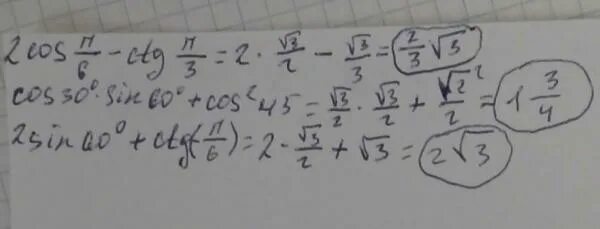 2cos π/6 - ctg π/3 = 2 · √3/2 - √3/3 = 2/3 √3
cos30° · sin60° + cos² 45 = √3/2 · √3/2 + √2²/2 = 1 3/4
2sin60° + ctg(-π/6) = 2 · √3/2 + √3 = 2√3